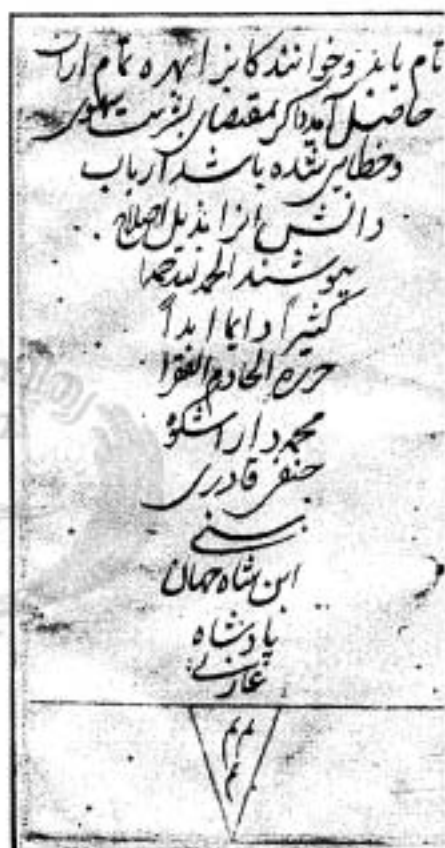 تام یابد و خوانندگانرا بهره تمام ازان
حاصل آید و اگر بمقتضای بشریت سهوی
و خطایی شده باشد ارباب
دانش انرا بذیل اصلاح
بپوشند الحمد لله حمدا
کثیراً دایما ابداً
حرره الخادم الفقرا
محمد دارا شکوه
حنفی قادری
سنی
ابن شاه جهان
پادشاه
غازی
م م
م